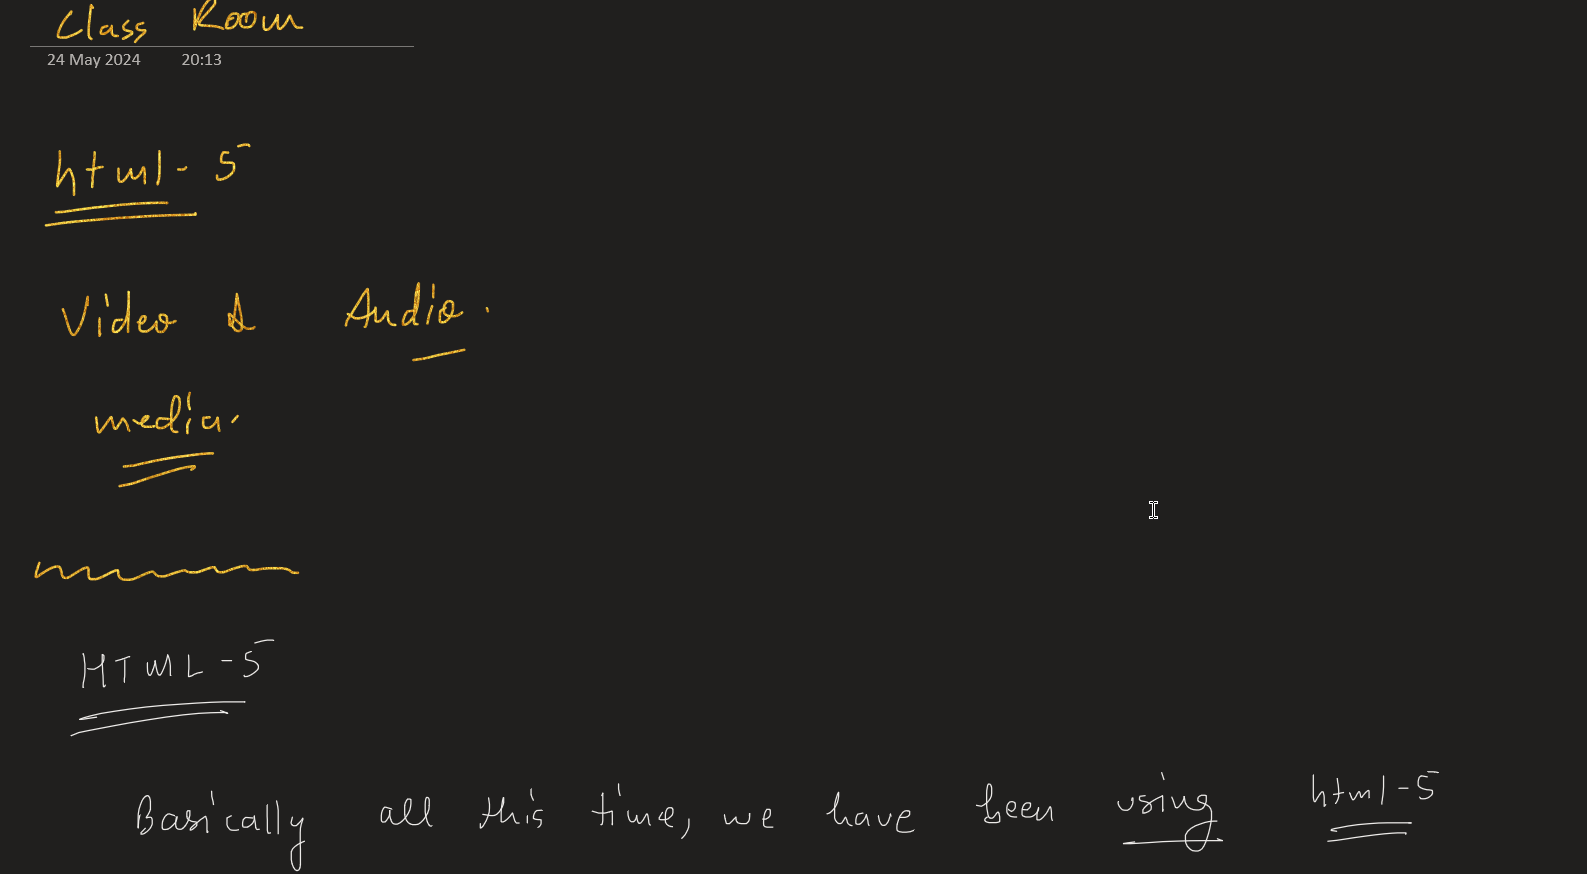 Class Room
24 May 2024 20:13
html-5
Video & Audio.
media.
HTML-5
Basically all this time, we have been using html-5